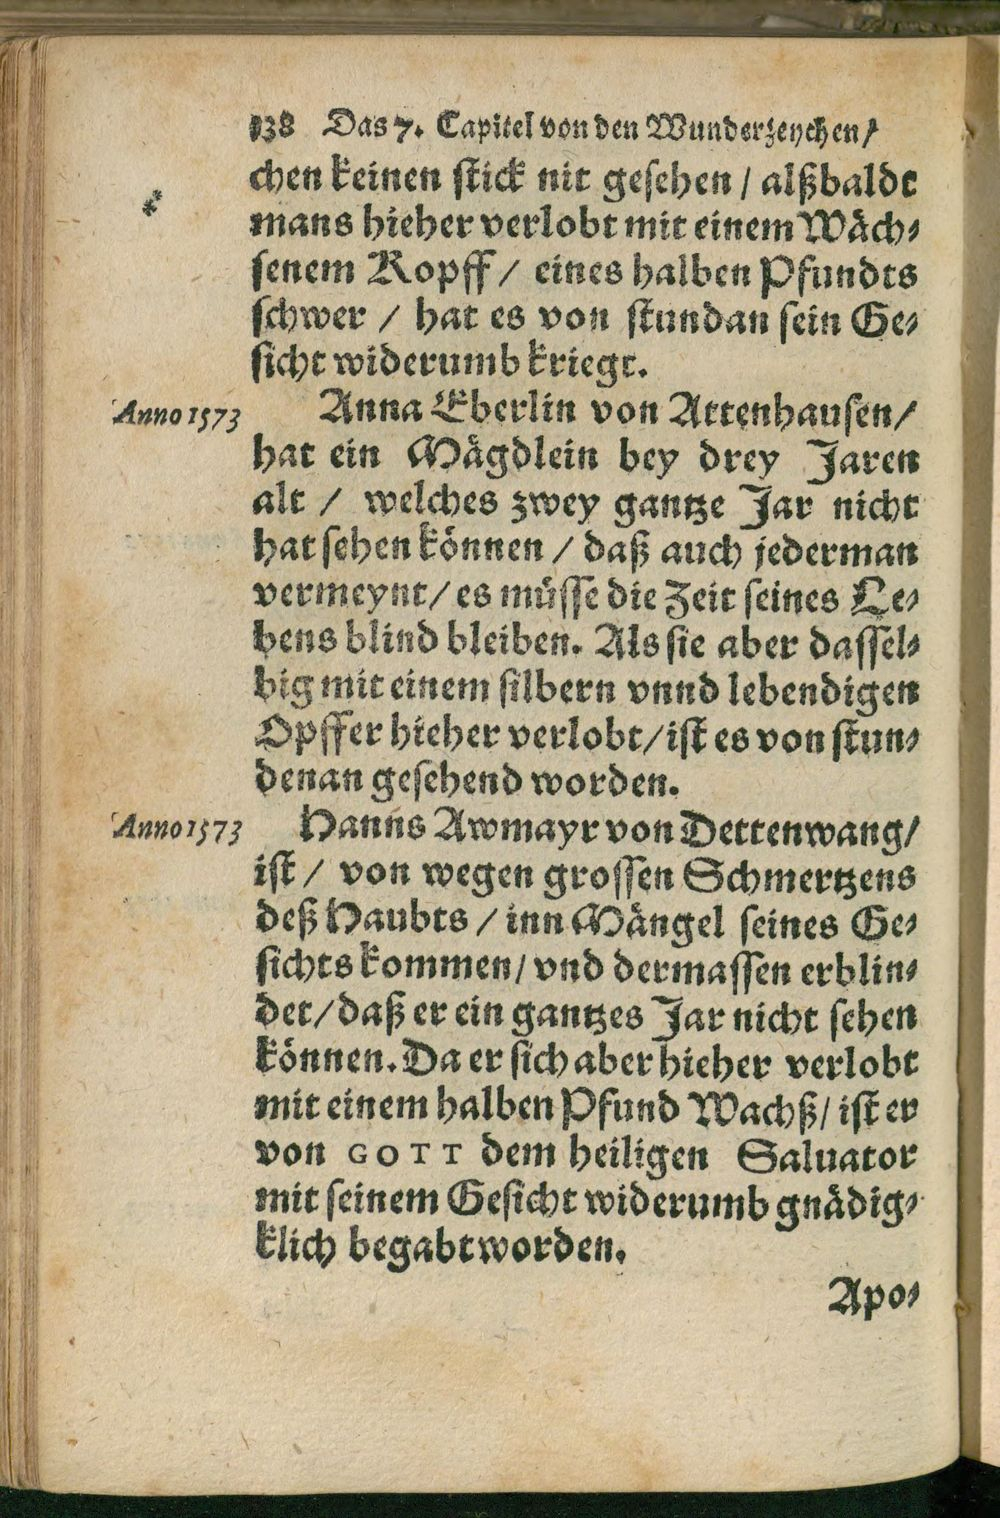 138 Das 7. Capitel von den Wunderzeychen/
chen keinen stick nit gesehen / alßbaldt
mans hieher verlobt mit einem Wäch⸗
senem Kopff / eines halben Pfundts
schwer / hat es von stundan sein Ge⸗
sicht widerumb kriegt.
Anno 1573
Anna Eberlin von Attenhausen /
hat ein Mägdlein bey drey Jaren
alt / welches zwey gantze Jar nicht
hat sehen können / daß auch jederman
vermeynt / es müsse die Zeit seines Le⸗
bens blind bleiben. Als sie aber dassel⸗
big mit einem silbern vnnd lebendigen
Opffer hieher verlobt / ist es von stun⸗
denan gesehend worden.
Anno 1573
Hanns Awmayr von Dettenwang /
ist / von wegen grossen Schmertzens
deß Haubts / inn Mängel seines Ge⸗
sichts kommen / vnd dermassen erblin⸗
det / daß er ein gantzes Jar nicht sehen
können. Da er sich aber hieher verlobt
mit einem halben Pfund Wachß / ist er
von GOTT dem heiligen Saluator
mit seinem Gesicht widerumb gnädig⸗
klich begabt worden.
Apo⸗